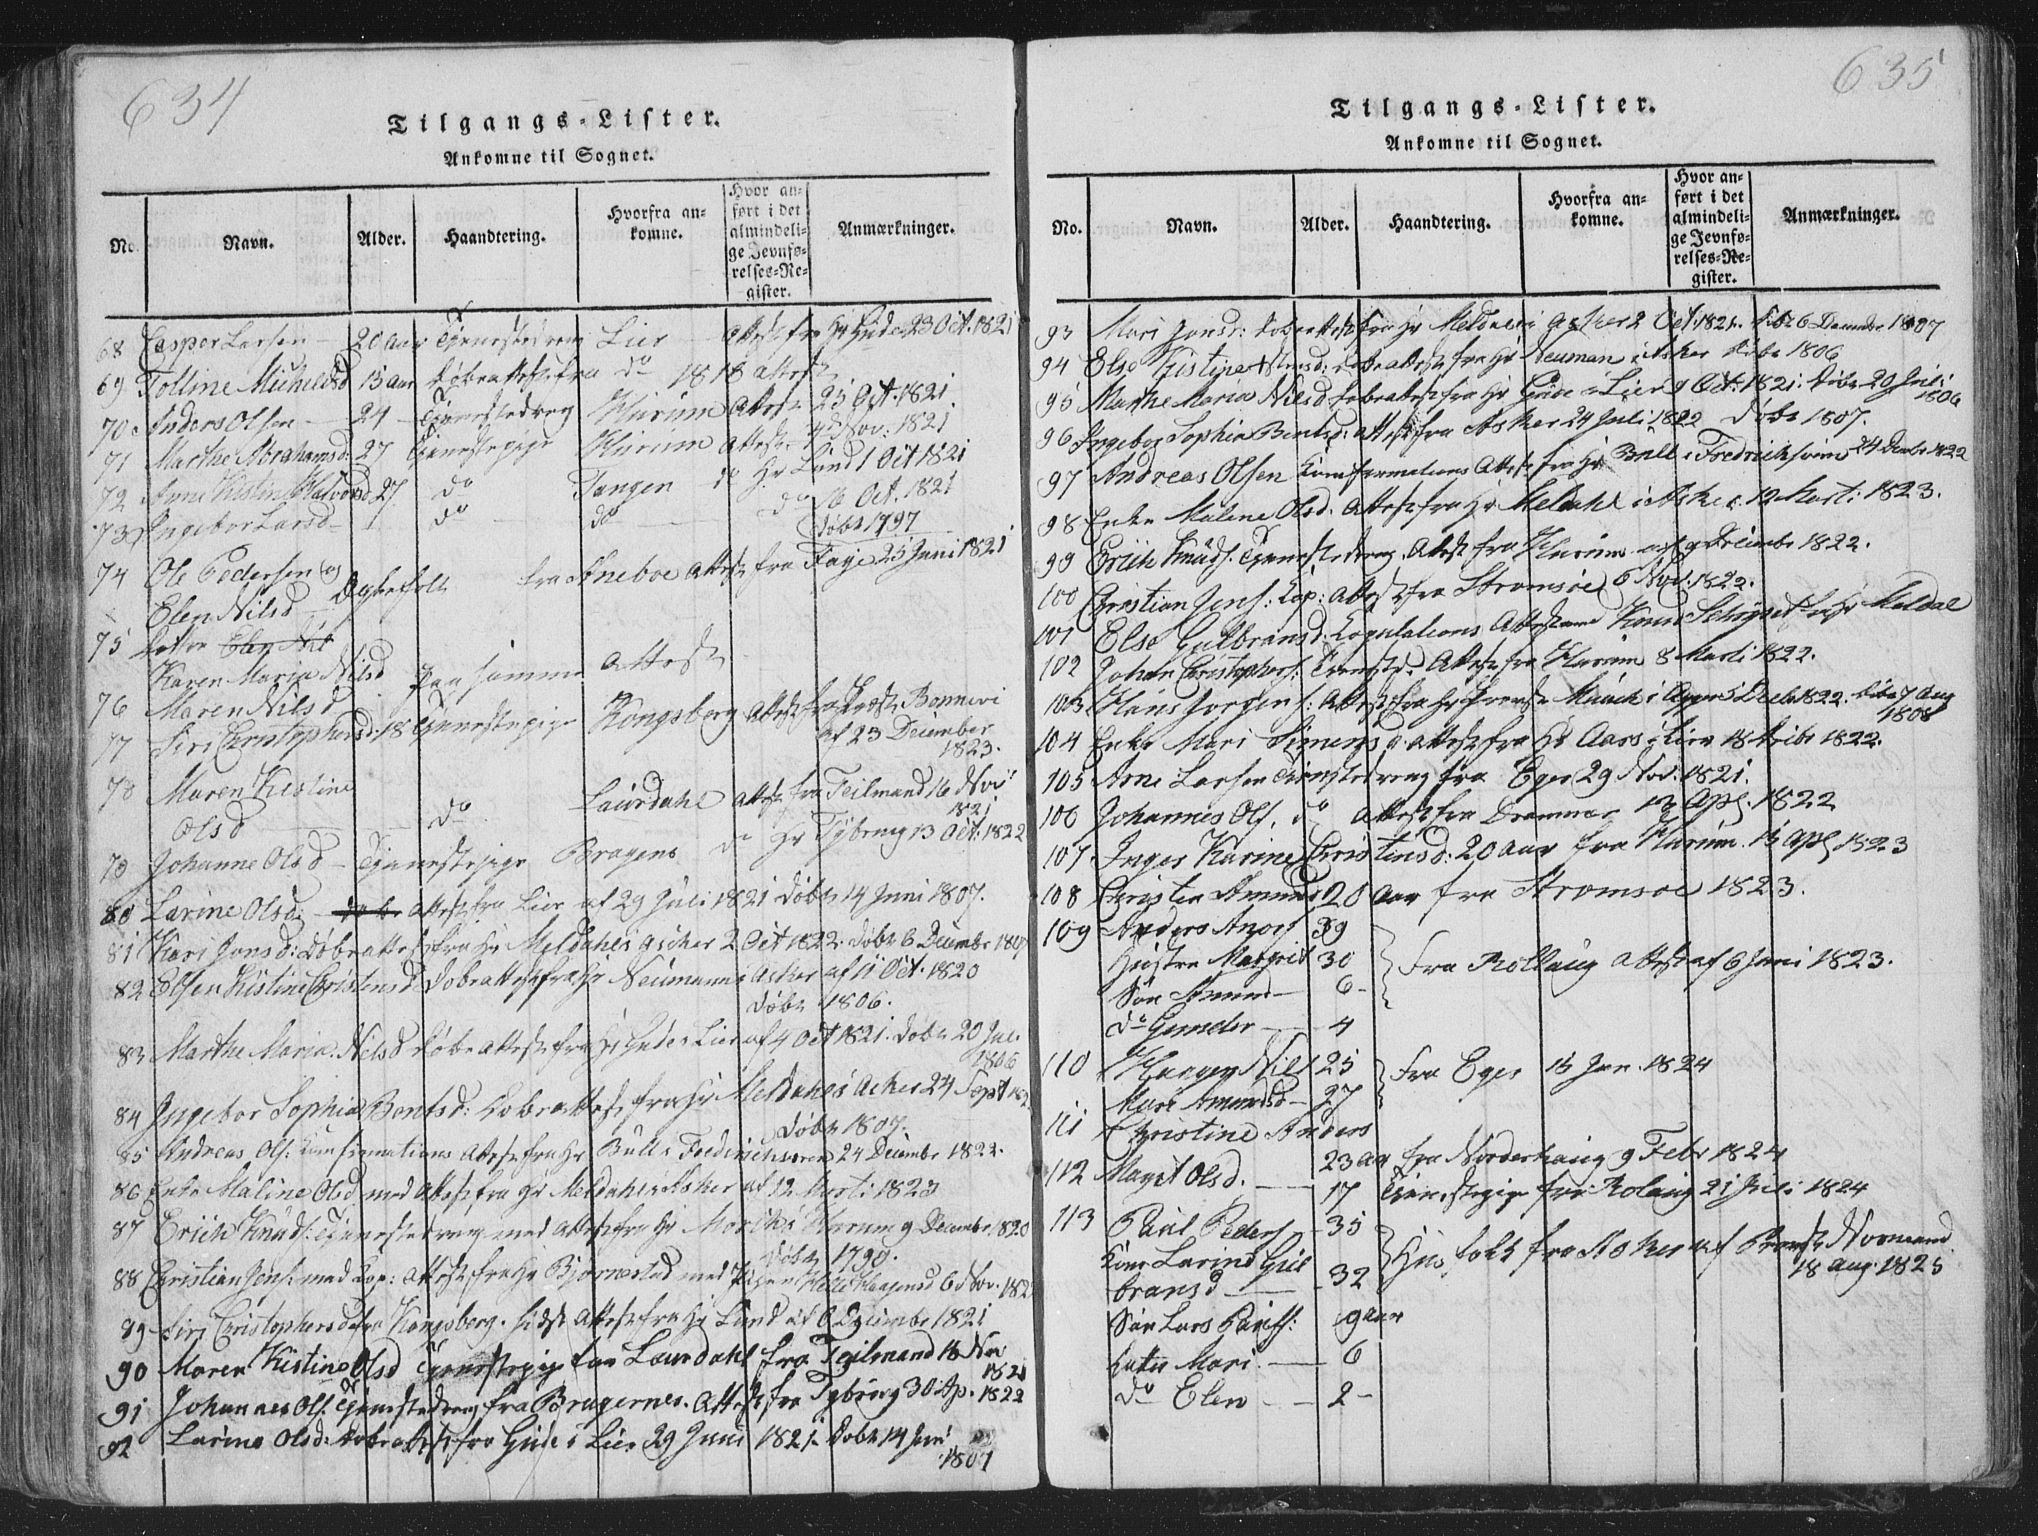 634
Tilgangs-Lister.
Ankomne til Sognet.
No. Navn. Alder. Haandtering. Hvorfra ankomne. Hvor anført i det almindelige Jevnførelses-Register. Anmærkninger.
68 Casper Larsen 20 aar Tjenestedreng Lier Attest fra Hr Gude 23 Oct. 1821
69 Tolline Michelsd 15 aar døbeattest fra do 1818 attest
70 Anders Olsen 24 Tjenestedreng Hurum Attest 25 Oct. 1821
71 Marthe Abrahamsd. 27 Tjenestepige Hurum attest Nov. 1821
72 Anne Kistin Halvorsd 27. do Tangen do Hr Lund 1 Oct 1821
73 Ingebor Larsd do do do 16 Oct. 1821
døbt 1797
74 Ole Pedersen og fra Aneboe Attest fra Faye 25 Juni 1821
Elen Nilsd Egtefolk
75 Datter Elen Nil
Karen Maria Nilsd paa samme Attest
76 Maren Nilsd
77 Siri Christophersd: 18 Tjenestepige Kongsberg attest fra Provst Bonnevi
af 23 December
1823.
78 Maren Kistine
Olsd do Laurdahl attest fra Teilmand 16 Nov
1821
79 Johanne Olsd Tjenestepige Bragens do Hr Tybring 13 Oct. 1822
80 Larine Olsd: attest fra Lier af 29 Juli 1821 døbt 14 Juni 1807.
81 Kari Jonsd: Døbeattest fra Hr Meldahl i Ascher 2 Oct 1822. døbt 6 December 1807
82 Elsen Kistine Christensd Døbeattest fra Hr Neumann i Asker af 11 Oct. 1820
døbt 1806.
83 Marthe Maria Nilsd døbeattest fra Hr Gude i Lier af 9 Oct 1821. døbt 20 Jul.
1806
84 Ingebor Sophia Bentsd: Døbeattest fra Hr Meldahl i Acher 24 Sept
døbt 1807.
85 Andreas Ols: Konfirmations Attest fra Hr Bull i Frederichsværn 24 December 1822.
86 Enke Maline Olsd med attest fra Hr Meldahl i Asker af 12 Marti 1823
87 Erich Knuds: Tjenestedreng med attest fra Hr Mork i Hurum 9 December 1820
døbt 1790.
88 Christian Jens: med Kop: attest fra Hr Bjørnestad med Pigen Helle Haagensd 6 Nov. 182
89 Siri Christophersd fra Kongsberg. sidst attest fra Hr Lund af 6 December 1821
90 Maren Kistine Olsd Tjenestepige fra Laurdahl fra Teilmand 18 Nov
1821
91 Johannes Ols. Tjenestedreng fra Bragernes. Attest fra Tybring 30 Ap. 1822
92 Larine Olsd: Døbeattest fra Gude i Lier 29 Juni 1821. døbt 14 Juni
1807
635
Tilgangs-Lister.
Ankomne til Sognet.
No. Navn. Alder. Haandtering. Hvorfra ankomne. Hvor anført i det almindelige Jevnførelses-Register. Anmærkninger.
93 Mari Jonsd: døbeattest fra Hr Meldal i Asker 2 Oct: 1821. døbt 6 December 1807
94 Else Kistine døbeattest fra Hr Neuman i Asker døbt 1806
95 Marthe Maria Nilsd døbeattest fra Hr Gude i Lier 9 Oct. 1821. døbt 20 Juli
1806
96 Ingebor Sophia Bentsd: attest fra Asker 24 Juli 1822 døbt 1807.
97 Andreas Olsen Konfirmations Attest fra Hr Bull i Fredriksværn 24 Decembr 1822
98 Enke Malene Olsd. Attest fra Hr Meldahl i Asker 12 Marti 1823.
99 Erich Knuds. Tjenestedreng. Attest fra Hurum af 9 December 1822.
100 Christian Jens: Kop: attest fra Strømsøe 6 Nov. 1822.
101 Else Gulbransd: Kopulations Attest med Knud fra Hr Meldal
102 Johan Christophers: Tjenested. Attest fra Hurum 8 Marti 1822.
103 Hans Jorgens: Attest fra Hr Provst Münch i 5 Decb 1822. døbt 7 Aug
1808
104 Enke Mari Simens attest fra Hr Aass i Lier 18 Aribr 1822.
105 Arne Larsen Tjenestedreng fra Eger 29 Nov. 1821.
106 Johannes Ols. do attest fra Drammen 13 Apl. 1822
107 Inger Karine Christensd: 20 aar fra Hurum. 15 Apl 1823
108 Christen Amunds 20 aar fra Strømsøe 1823.
109 Anders Anders 39
Hustru Margrit 30 Fra Rollaug attest af 6 Juni 1823.
Søn Amund 6
do Gunder 4
110 Haagen Nils 25 Fra Eger 15 Jan. 1824
Mari Amundsd 27
111 Christine Anders
23 aar fra Norderhaug 9 Febr 1824
112 Magit Olsd. 17 Tjenestepige fra Rolaug 21 Juli 1824
113 Paul Peders 35
Kone Larine Gul Husfolk fra Asker af Provst Normand
bransd 32 18 Aug. 1825
Søn Lars Pauls: 9 aar
Datter Mari 6
do Elen 2